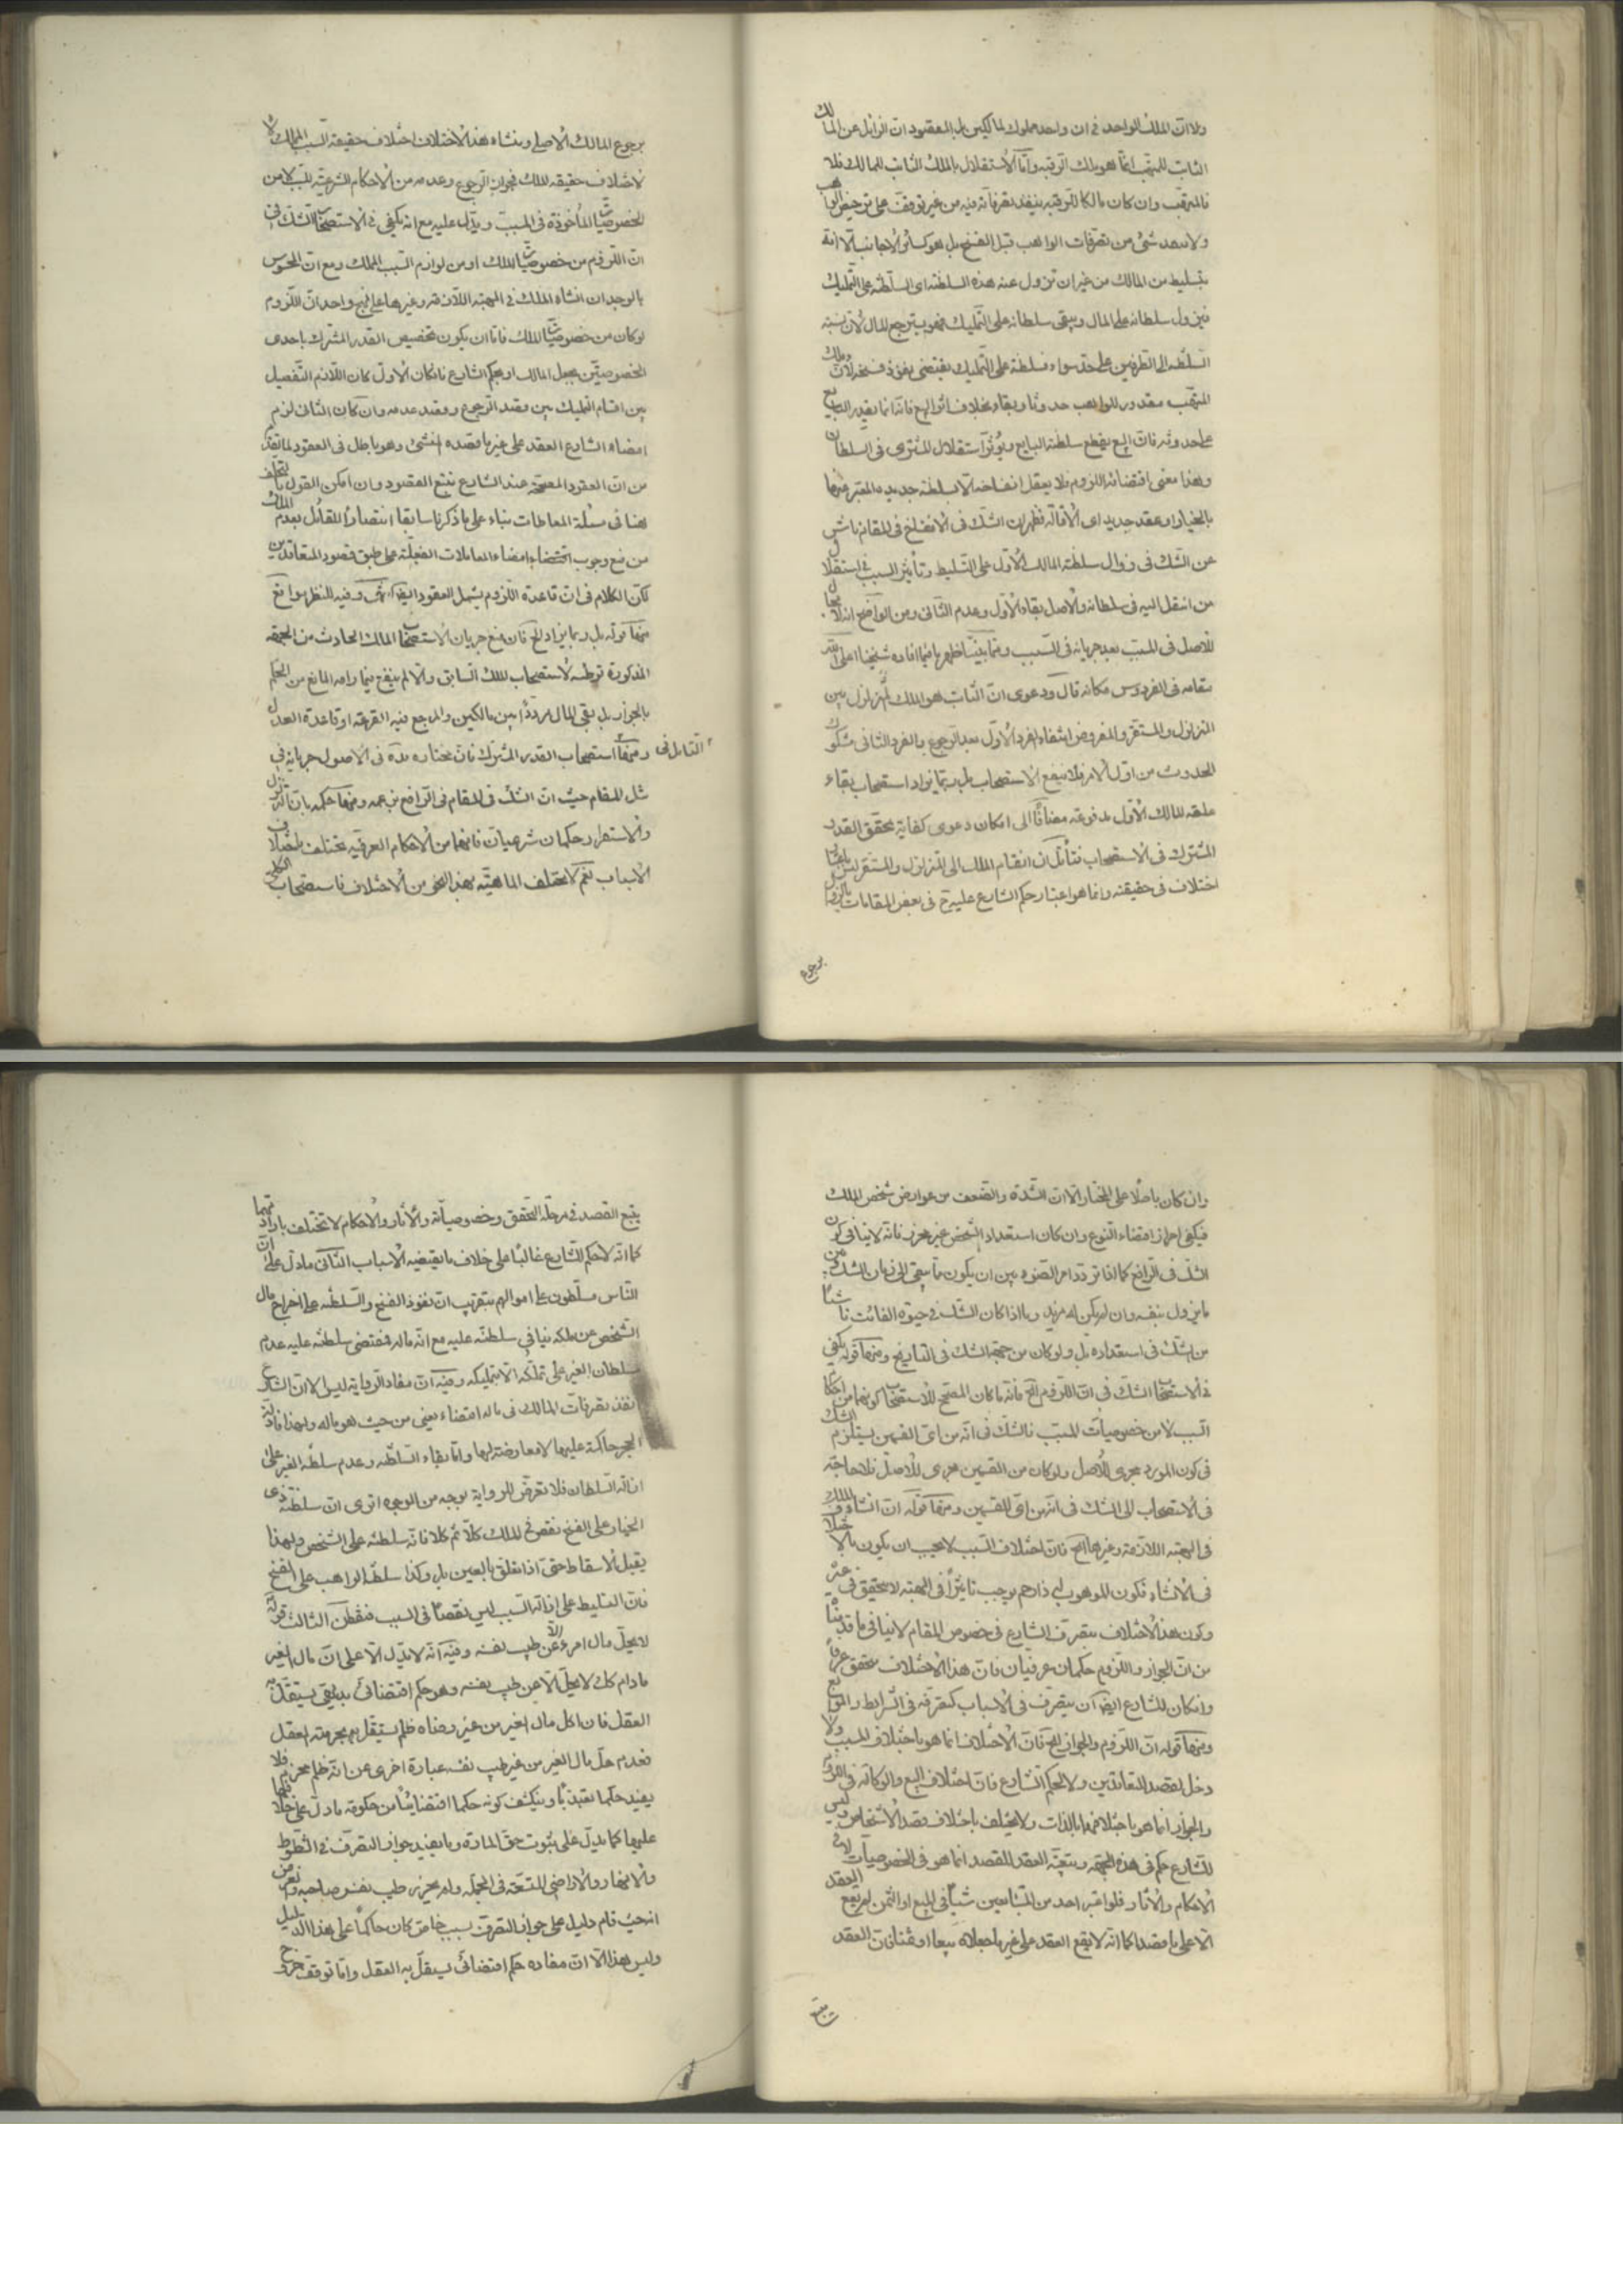 ولا ان الملك الواحد في ان واحد مملوك لمالكين بل المقصود ان الزائل عن المالك
الثابت للمتهب انما هو ملك الرقبة واما الاستقلال بالملك الثابت للمالك فلا
فالمتهب وان كان مالكا للرقبة ينفذ تصرفاته فيه من غير توقف على ترخيص الواهب
ولا ينفذ شئ من تصرفات الواهب قبل الفسخ بل هو كسائر الاجانب الا انه
بتسليط من المالك من غير ان تزول عنه هذه السلطنة اى السلطنة على التمليك
فيزول سلطانه على المال ويبقى سلطانه على التمليك فهو يسترجع المال لان نسبة
السلطنة الى الطرفين على حد سواء فسلطنة على التمليك يقتضى نفوذ فسخه لان ملك
المتهب مقدور للواهب حدوثا وبقاء بخلاف سائر البيع فانه انما يقدر البايع
على حدوثه فان البيع يقطع سلطنة البايع ويؤثر استقلال المشترى فى السلطان
وهذا معنى اقتضائه اللزوم فلا يعقل انفساخه الا بسلطنة جديدة المعبر عنها
بالخيار او عقد جديد اى الاقالة فظهر ان الشك فى الانفساخ فى المقام ناش
عن الشك فى زوال سلطنة المالك الاول على التسليط وتأثير السبب فى استقلال
من انتقل اليه فى سلطانه والاصل بقاء الاول وعدم الثانى ومن الواضح انه لا مجال
للاصل فى المسبب بعد جريانه فى السبب ومما بينا ظهر ما فيما افاده شيخنا اعلى الله
مقامه فى الفردوس مكانه قال ودعوى ان الثابت هو الملك المتزلزل بين
المتزلزل والمستقر والمفروض انتفاء الفرد الاول بعد الرجوع والفرد الثانى مشكوك
الحدوث من اول الامر فلا ينفع الاستصحاب بل ربما يزاد استصحاب بقاء
علقة المالك الاول مدفوعة مضافا الى امكان دعوى كفاية تحقق القدر
المشترك فى الاستصحاب فتأمل ان انقسام الملك الى المتزلزل والمستقر ليس باعتبار
اختلاف فى حقيقته وانما هو اعتبار حكم الشارع عليه فى بعض المقامات بالزوال
برجوع
برجوع المالك الاصلى ومنشاء هذا الاختلاف اختلاف حقيقة السبب المملك لا
لاختلاف حقيقة الملك فجواز الرجوع وعدمه من الاحكام الشرعية للسبب لا من
الخصوصيات المأخوذة فى المسبب ويدل عليه مع انه يكفى فى الاستصحاب الشك فى
ان اللزوم من خصوصيات الملك او من لوازم السبب المملك ومع ان المحسوس
بالوجدان انشاء الملك فى الهبة اللازمة وغيرها على نهج واحد ان اللزوم
لو كان من خصوصيات الملك فاما ان يكون تخصيص القدر المشترك باحدى
الخصوصيتين بجعل المالك او بحكم الشارع فان كان الاول كان اللازم التفصيل
بين اقسام التمليك بين قصد الرجوع وقصد عدمه وان كان الثانى لزم
امضاء الشارع العقد على غير ما قصده المنشئ وهو باطل فى العقود لما تقدم
من ان العقود المصححة عند الشارع تتبع القصود وان امكن القول بالتخلف
هنا فى مسئلة المعاطات بناء على ما ذكرنا سابقا انتصارا للقائل بعدم الملك
من منع وجوب امضاء المعاملات الفعلية على طبق قصود المتعاقدين
لكن الكلام فى ان قاعدة اللزوم يشمل العقود ايضا انتهى وفيه للنظر مواقع
منها قوله بل ربما يزاد الخ فان منع جريان الاستصحاب المالك الحادث من الجهة
المذكورة توطئة لاستصحاب الملك السابق والا لم ينفع فيما رامه المانع من الحكم
بالجواز بل بقى المال مرددا بين مالكين والمرجع فيه القرعة او قاعدة العدل
التامل فى ومنها استصحاب القدر المشترك فان مختاره قده فى الاصول جريانه فى
مثل المقام حيث ان الشك فى المقام فى الرافع بزعمه ومنها حكمه بان التزلزل
والاستقرار حكمان شرعيان فانهما من الاحكام العرفية تختلف باختلاف
الاسباب نعم لا تختلف الماهية بهذا النحو من الاختلاف فاستصحاب الكلى
وان كان باطلا على المختار الا ان الشدة والضعف من عوارض شخص الملك
فيكفى احراز اقتضاء النوع وان كان استعداد الشخص غير محرز فانه لا ينافى كون
الشك فى الرافع كما اذا تردد امر الضوء بين ان يكون مما يبقى الى زمان الشك من
ما يزول بنفسه وان لم يكن له مزيل وما اذا كان الشك فى حيوة الغائب ناشئا
من الشك فى استعداده بل ولو كان من جهة الشك فى التاريخ ومنها قوله يكفى
فى الاستصحاب الشك فى ان اللزوم الخ فانه ما كان المصحح للاستصحاب كونهما من احكام
السبب لا من خصوصيات المسبب فالشك فى انه من اى القسمين يستلزم الشك
فى كون المورد مجرى للاصل ولو كان من القسمين مجرى للاصل فلا حاجة
فى الاستصحاب الى الشك فى انه من اى القسمين ومنها قوله ان انشاء الملك
فى الهبة اللازمة وغيرها الخ فان اختلاف السبب لا يجب ان يكون بالاختلاف
فى الانشاء فكون الموهوب له ذا رحم يوجب تأثيرا فى الهبة لا يتحقق فى غيره
وكون هذا الاختلاف بتصرف الشارع فى خصوص المقام لا ينافى ما قدمنا
من ان الجواز واللزوم حكمان عرفيان فان هذا الاختلاف متحقق عرفا
وان كان للشارع ايضا ان يتصرف فى الاسباب كتصرفه فى الشرايط والموانع
ومنها قوله ان اللزوم والجواز الخ فان الاختلاف انما هو باختلاف السبب ولا
دخل لقصد المتعاقدين ولا لحكم الشارع فان اختلاف البيع والوكالة فى اللزوم
والجواز انما هو باختلافهما بالذات ولا يختلف باختلاف قصد الاشخاص وليس
للشارع حكم فى هذه الجهة وتبعية العقد للقصد انما هو فى الخصوصيات لا فى
الاحكام والاثار فلو اعتبر احد من المتبايعين شيئا فى المبيع او الثمن لم يقع العقد
الا على ما قصدا كما انه لا يقع العقد على غير ما جعلاه مبيعا او ثمنا فان العقد
يتبع
يتبع القصد فى مرحلة التحقق وخصوصياته والاثار والاحكام لا تختلف بارادتهما
كما انه لا حكم للشارع غالبا على خلاف ما يقتضيه الاسباب الثانى ما دل على ان
الناس مسلطون على اموالهم بتقريب ان نفوذ الفسخ والسلطنة على اخراج مال
الشخص عن ملكه ينافى سلطنته عليه مع انه ماله فمقتضى سلطنته عليه عدم
سلطان الغير على تملكه الا بتمليكه وفيه ان مفاد الرواية ليس الا ان الشارع
انفذ تصرفات المالك فى ماله اقتضاء يعنى من حيث هو ماله ولهذا فادلة
الحجر حاكمة عليها لا معارضة لها واما بقاء السلطنة وعدم سلطنة الغير على
ازالة السلطان فلا تعرض للرواية بوجه من الوجوه اترى ان سلطنة ذى
الخيار على الفسخ نقص فى الملك كلا ثم كلا فانه سلطنة على الشخص ولهذا
يقبل الاسقاط حتى اذا تعلق بالعين بل وكذا سلطنة الواهب على الفسخ
فان التسليط على ازالة السبب ليس نقصا فى السبب فتفطن الثالث قوله
لا يحل مال امرء الا عن طيب نفسه وفيه انه لا يدل الا على ان مال الغير
ما دام كك لا يحل الا عن طيب نفسه وهو حكم اقتضائى بديهى يستقل به
العقل فان اكل مال الغير من غير رضاه ظلم يستقل بحرمته العقل
فعدم حل مال الغير من غير طيب نفسه عبارة اخرى عن انه ظلم محرم فلا
يفيد حكما تعبديا وينكشف كونه حكما اقتضائيا من حكومة ما دل على خلافها
عليها كما يدل على ثبوت حق المارة وما يفيد جواز التصرف فى الطرق
والانهار والاراضى المتسعة فى الجملة ولم يحرز طيب نفس صاحبه
انه حيث قام دليل على جواز التصرف بسبب خاص كان حاكما على هذا الدليل
وليس هذا الا ان مفاده حكم اقتضائى يستقل به العقل واما توقف خروج